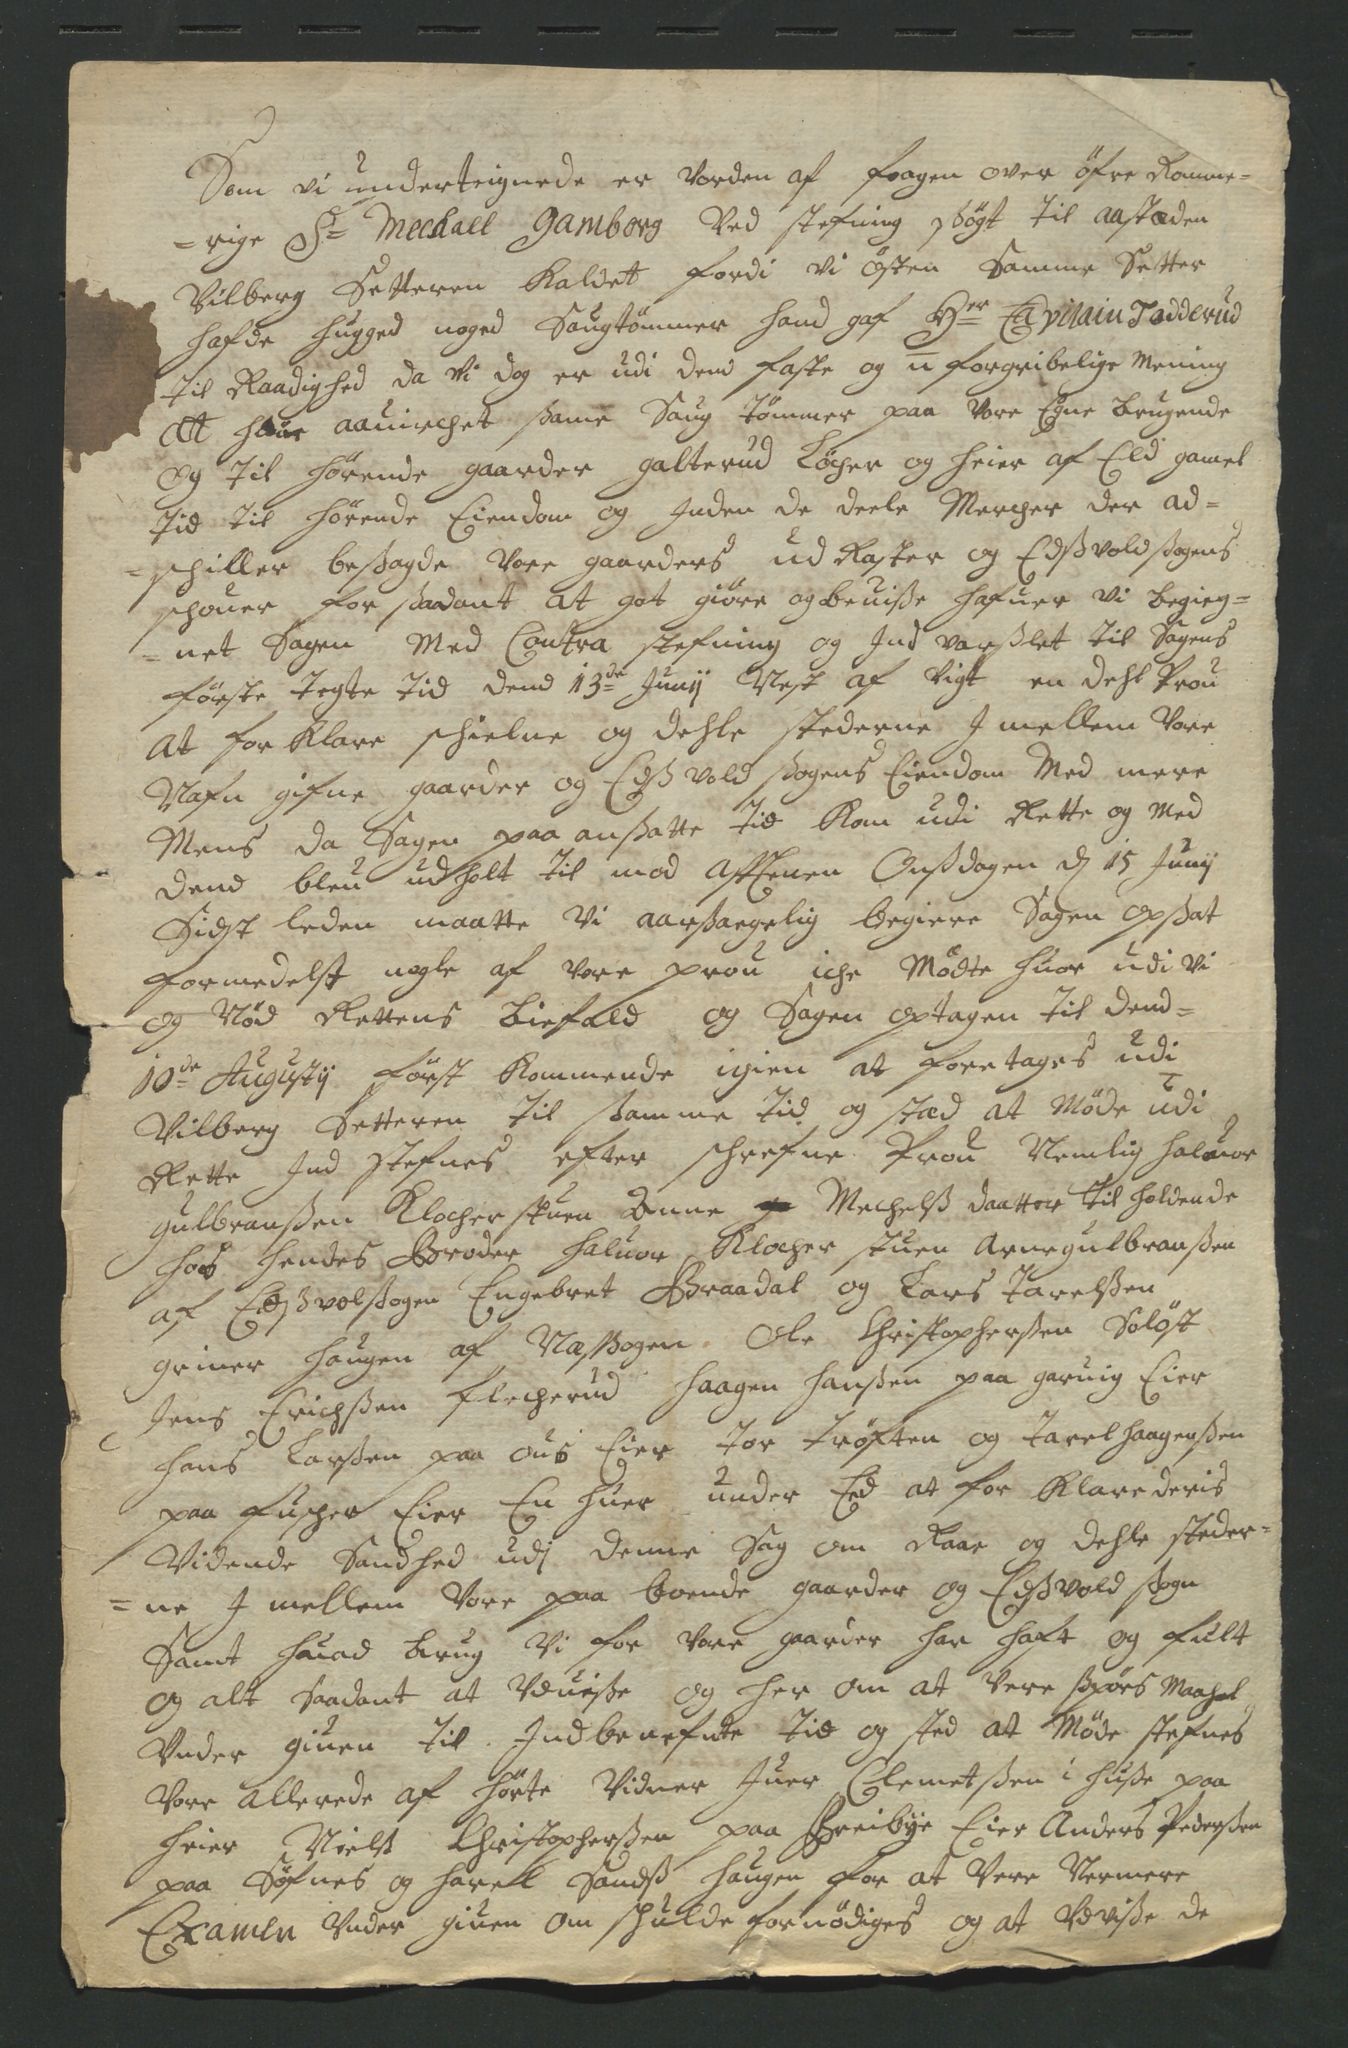 Som vi underteignede er vorden af fogen over öfre Romme=
=rige Sr= Mechall Gamborg Ved stefning ssögt til aastæden
Vilberg Setteren Kaldet fordi vi östen Samme Setter
hafde hugged noged Saugtömmer hand gaf Hr= Capitain Tadderud
til Raadighed da vi dog er udi dend faste og uforgribelige Mening
Att haue aauirchet ssame Saug tömmer paa vore Egne brugende
og til hörende gaarder galterud Löcher og heier af Eld gamel
tid til hörende Eiendom og Inden de deele Mercher der ad=
=schiller bessagde vore gaarders ud Raster og Edssvoldssogens
schouer for ssaadant at got giöre og beuisse hafuer vi begieg=
=net Sagen Med Contra stefning og Ind varsslet til Sagens
förste tegte tid dend 13de Junij Nest af Vigt en dehl Prou
at for Klare schielne og dehle stederne I mellem vore
Nafn gifne gaarder og Edssvold ssogens Eiendom Med mere
Mens da Sagen paa anssatte tid Kom udi Rette og Med
dend bleu udholt til mod Afftenen Onssdagen d 15 Junij
Sidst leden maatte vi aarssaegelig begiere Sagen opssat
formedelst nogle af vore prou iche Mödte huor udi vi
og Nöd Rettens biefald og Sagen optagen til dend=
10de Augustij först Kommende igien at foretages udi
Vilberg Setteren til ssamme tid og stæd at Möde udi
Rette Ind stefnes efter schrefne Prou Nemlig haluor
gulbranssen Klocherstuen Anne Mechelss daatter til holdende
hos hendes Broder haluor Klocher stuen Arne gulbranssen
af Edssvolssogen Engebret Braadal og Lars Tarelssen
griner haugen af Næssogen Ole Christopherssen Solöst
Jens Erichssen flecherud haagen hanssen paa garuig Eier
hans Larssen paa ous Eier tor tröften og Tarel haagenssen
paa fuscher Eier En huer under Eed at for Klare deris
Vidende Sandhed udj denne Sag om Raae og dehle steder=
=ne I mellem vore paa boende gaarder og Edssvold ssogn
Samt huad brug vi for vore gaarder har haft og fult
og alt saadant at Vduisse og her om at vere sspörs Maahl
Vnder giuen til Indbenefnte tid og sted at Möde stefnes
vore allerede af hörte Vidner Juer Clemetssen i husse paa
heier Nielss Christopherssen paa Breibÿe Eier Anders Pederssen
paa Söfnes og harell Sandss haugen for at vere Nermere
Examen Vnder giuen om schulde fornödiges og at Vdvisse de